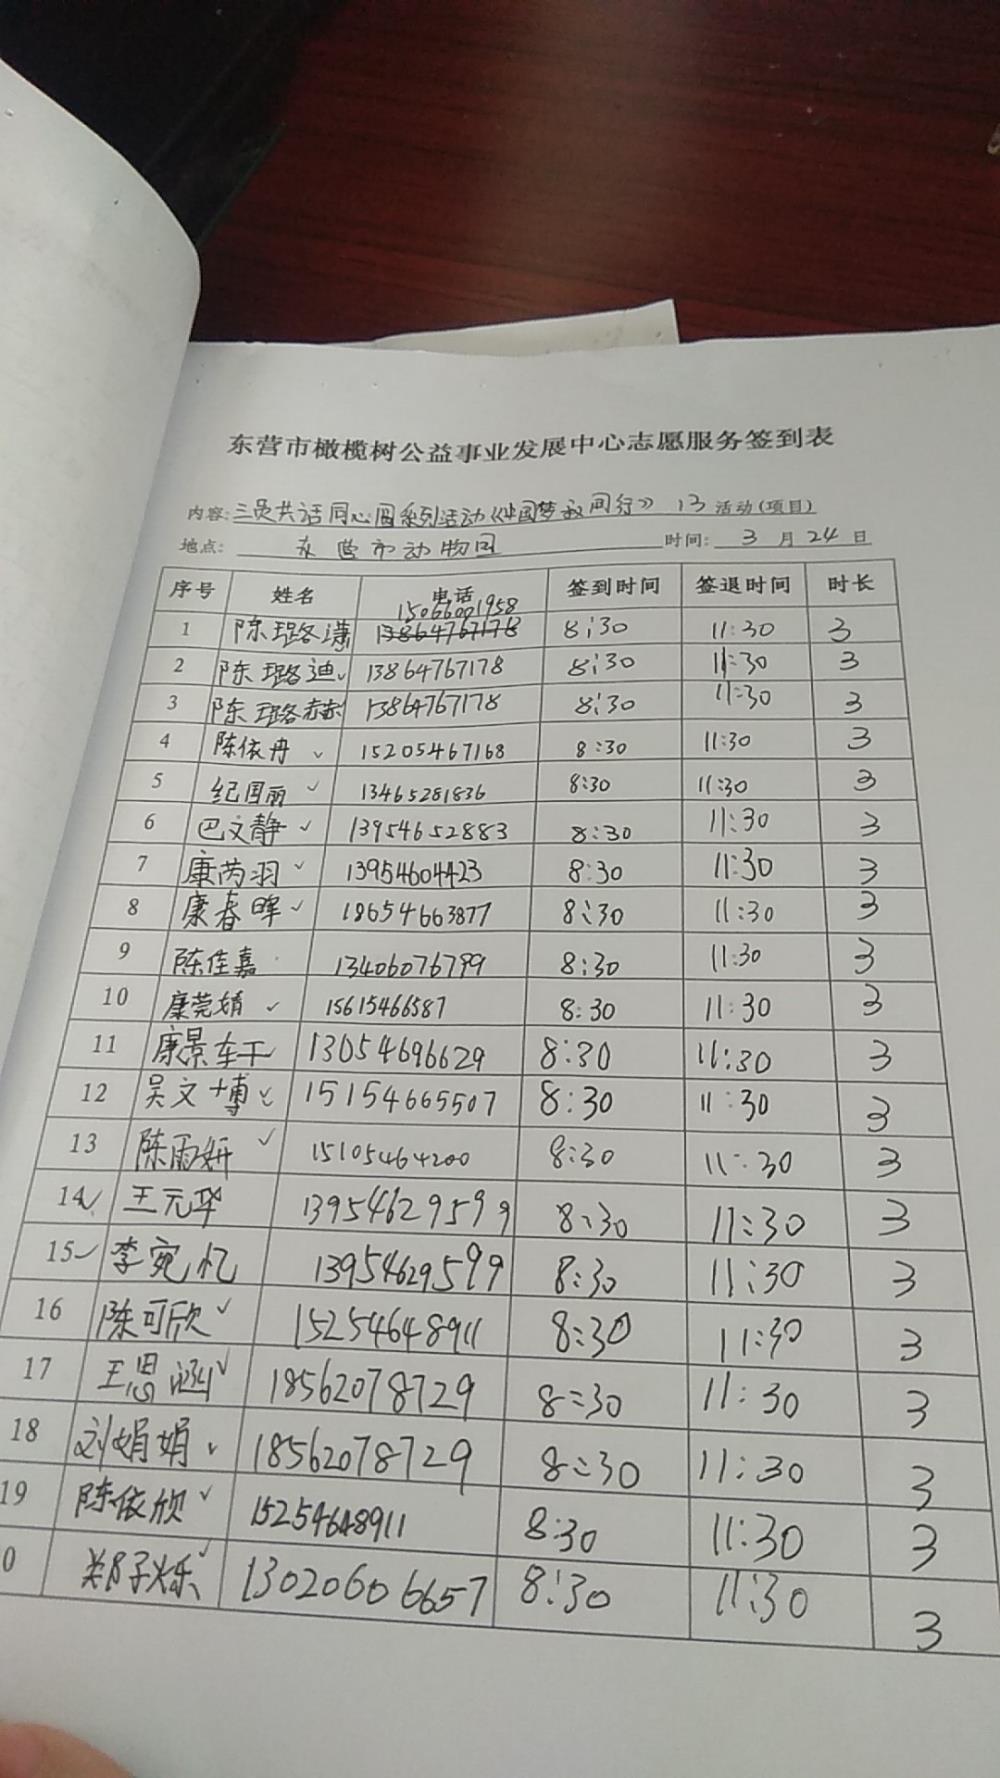 东营市橄榄树公益事业发展中心志愿服务签到表
内容: 三员共话同心圆系列活动《中国梦 我同行》 13 活动(项目)
地点: 东营市动物园 时间: 3 月 24 日
序号 姓名 电话 签到时间 签退时间 时长
15066001958
1 陈璐潇 13864767178 8:30 11:30 3
2 陈璐迪 13864767178 8:30 11:30 3
3 陈璐赫 13864767178 8:30 11:30 3
4 陈依冉 15205467168 8:30 11:30 3
5 纪国丽 13465281836 8:30 11:30 3
6 巴文静 13954652883 8:30 11:30 3
7 康芮羽 13954604423 8:30 11:30 3
8 康春晖 18654663877 8:30 11:30 3
9 陈佳嘉 13406076799 8:30 11:30 3
10 康莞婧 15615466587 8:30 11:30 3
11 康景轩 13054696629 8:30 11:30 3
12 吴文博 15154665507 8:30 11:30 3
13 陈雨妍 15105464200 8:30 11:30 3
14 王元华 13954629599 8:30 11:30 3
15 李宛忆 13954629599 8:30 11:30 3
16 陈可欣 15254648911 8:30 11:30 3
17 王思涵 18562078729 8:30 11:30 3
18 刘娟娟 18562078729 8:30 11:30 3
19 陈依欣 15254648911 8:30 11:30 3
0 郑子烁 13020606657 8:30 11:30 3